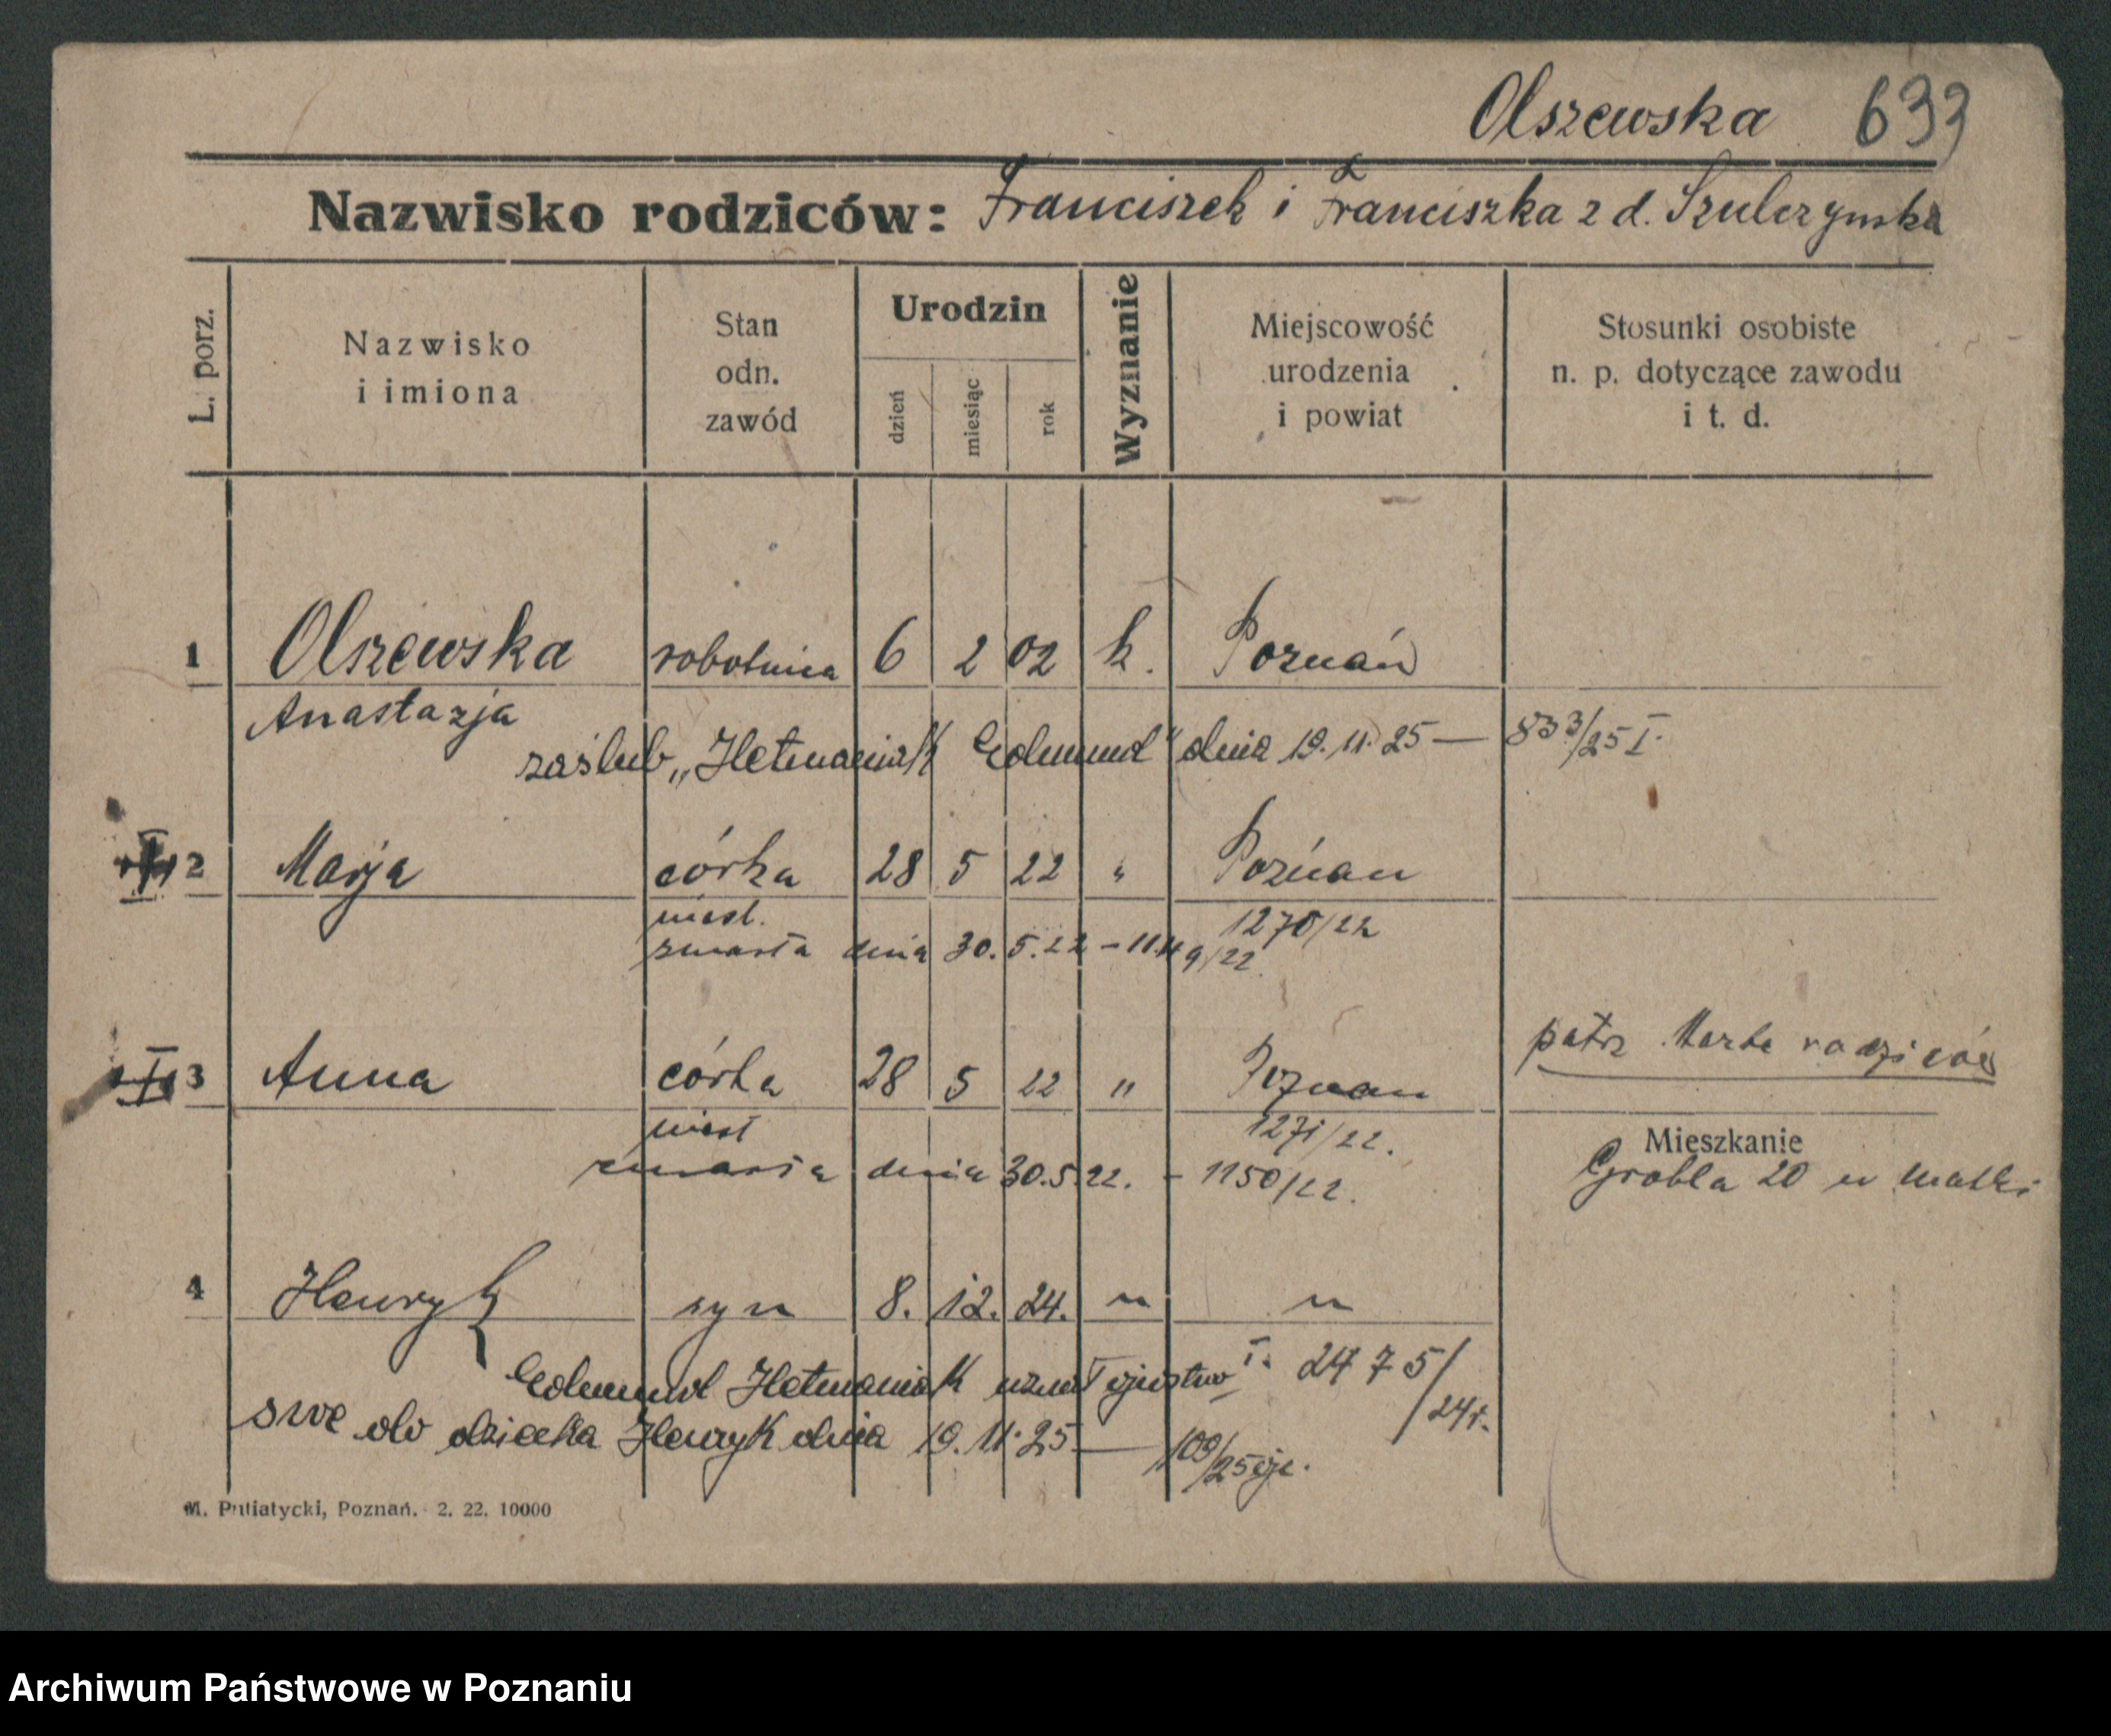 Olszewska 633
Nazwisko rodziców: Franciszek i Franciszka z d. Szulczynska
L. porz.
Nazwisko
i imiona
Stan
odn.
zawód
Urodzin
dzień
miesiąc
rok
Wyznanie
Miejscowość
urodzenia
i powiat
Stosunki osobiste
n. p. dotyczące zawodu
i t. d.
1 Olszewska robotnica 6 2 02 k. Poznań
Anastazja
zaślub. „Hetmaniak Edmund" dnia 19.11.25 — 833/25 I.
2 Marja córka 28 5 22 " Poznań
nieśl. 1270/22
zmarła dnia 30.5.22 – 1149/22
3 Anna córka 28 5 22 " Poznan
patrz Kartę rodziców
nieśl 1271/22.
zmarła dnia 30.5.22. – 1150/22.
Mieszkanie
Grobla 20 u matki
4 Henryk syn 8. 12. 24. " "
Edmund Hetmaniak uznał ojcostwo I. 2475/24r.
swe do dziecka Henryk dnia 19.11.25 — 109/25 oje.
M. Putiatycki, Poznań. 2. 22. 10000
Archiwum Państwowe w Poznaniu